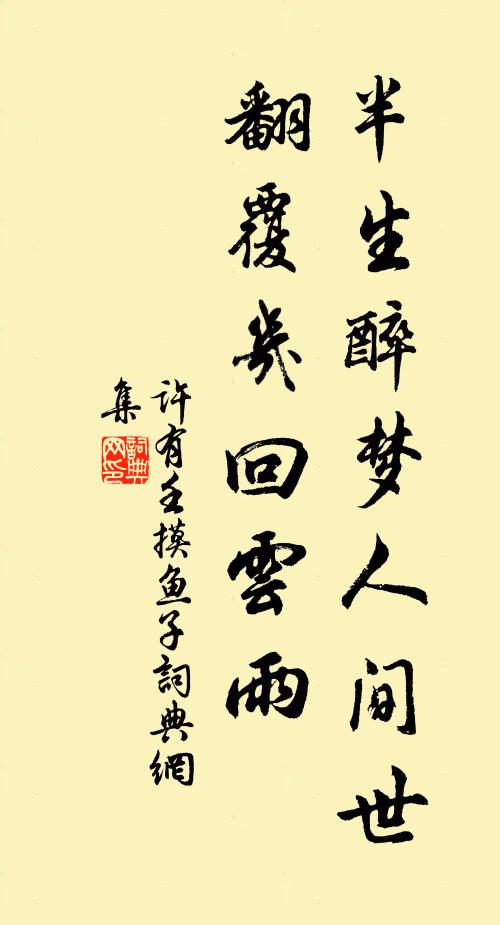 半生醉梦人间世
翻覆幾回雲雨
许有壬摸鱼子詞典網
集
詞典
网印